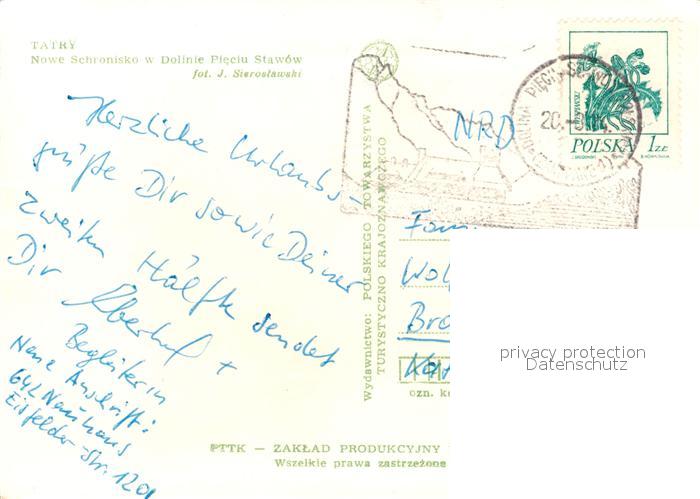 TATRY
Nowe Schronisko w Dolinie Pięciu Stawów
fot. J. Sierosławski
Herzliche Urlaubs-
grüße Dir sowie Deiner
zweiten Hälfte sendet
Dir Eberhard +
Begleiterin
Neue Anschrift:
642 Neuhaus
Eisfelder-Str. 120
Wydawnictwo: POLSKIEGO TOWARZYSTWA
TURYSTYCZNO KRAJOZNAWCZEGO
NRD
POLSKA 1 ZŁ
20.
Fam.
Wol
Bro
privacy protection
Datenschutz
ozn. k
PTTK — ZAKŁAD PRODUKCYJNY
Wszelkie prawa zastrzeżone